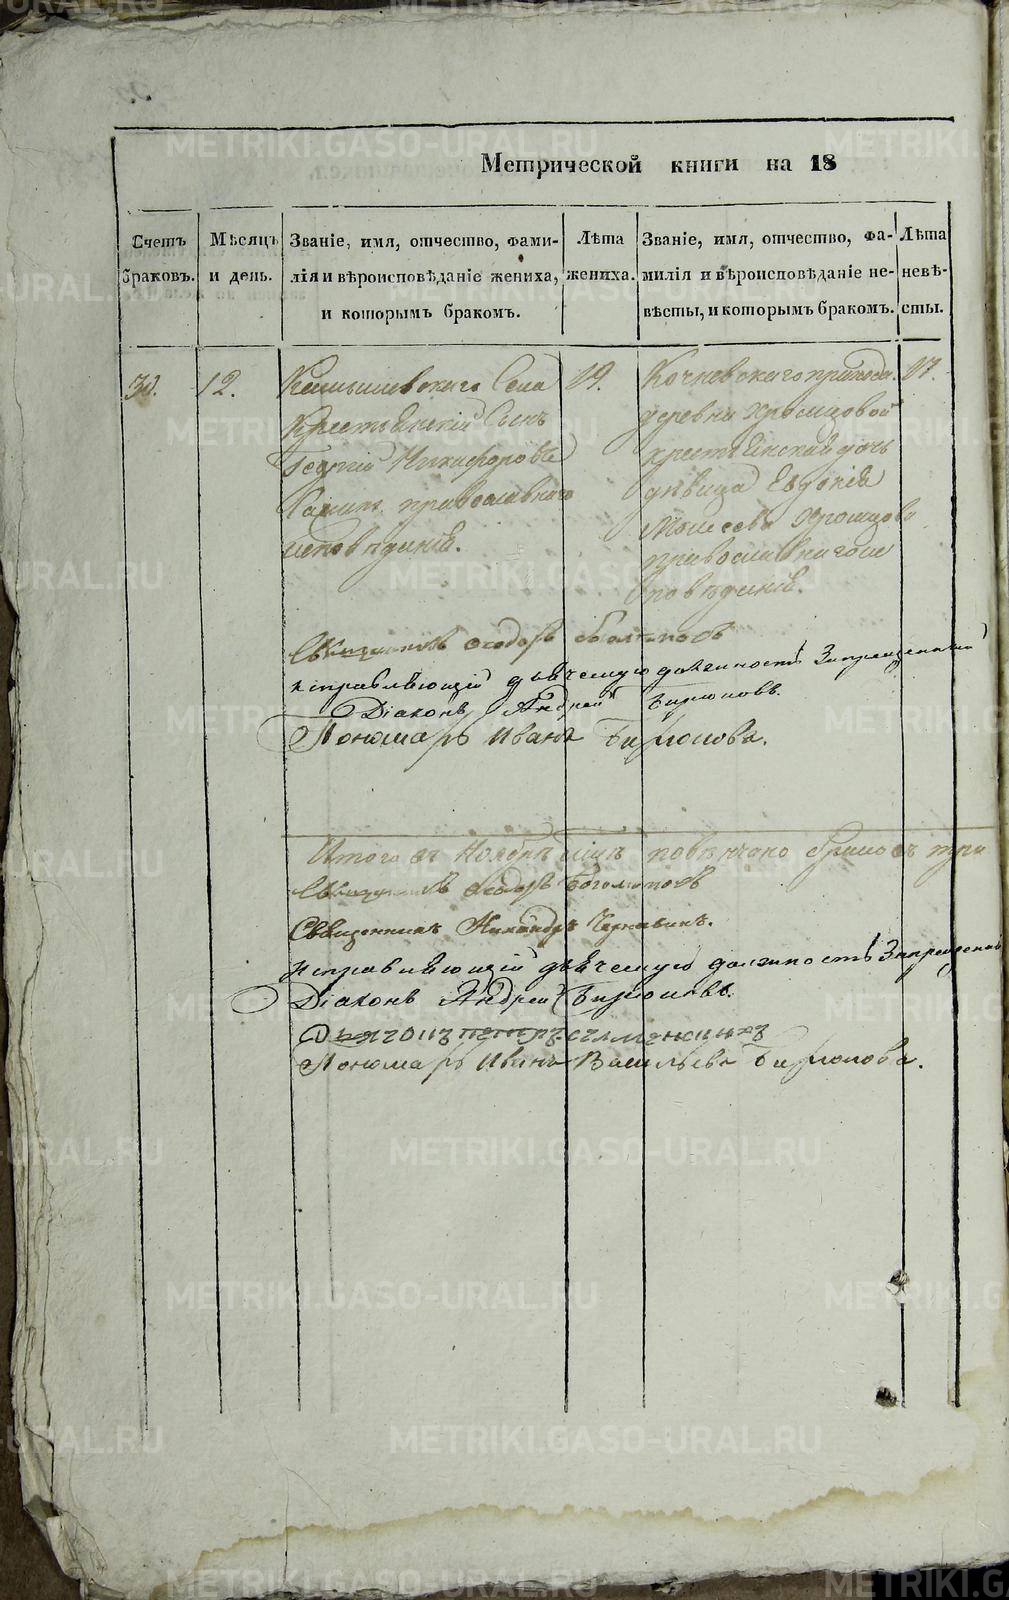 Метрической книги на 18
Счетъ браковъ.
Мѣсяцъ и день.
Званіе, имя, отчество, фами-
лія и вѣроисповѣданіе жениха,
и которымъ бракомъ.
Лѣта
жениха.
Званіе, имя, отчество, фа-
милія и вѣроисповѣданіе не-
вѣсты, и которымъ бракомъ.
Лѣта
невѣ-
сты.
12.
Камышевскаго Села
Крестьянскій Сынъ
Георгій Никифоровъ
православнаго
исповѣданія.
19.
Кочневскаго прихода
деревни Хромцовой
крестьянская дочь
дѣвица Евдокія
Моисеева Хромцова
православнаго ис
повѣданія.
17.
Священникъ Ѳеодоръ Боголюповъ
исправляющій дьяческую должность Запрещенный
Діаконъ Андрей Бирюковъ.
Пономарь Иванъ Бирюковъ.
Итого въ Ноябрѣ мцѣ повѣнчано браковъ три
Священникъ Ѳеодоръ Боголюповъ
Священникъ Никандръ Чернавинъ.
исправляющій дьяческую должность Запрещенный
Діаконъ Андрей Бирюковъ.
Дьячокъ Петръ
Пономарь Иванъ Васильевъ Бирюковъ.
METRIKI.GASO-URAL.RU